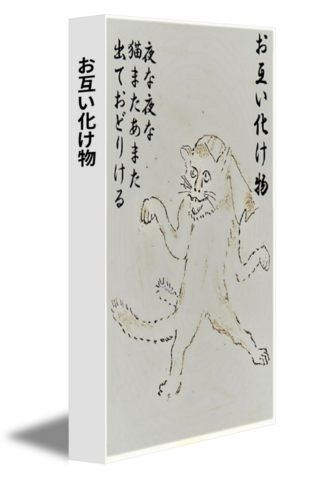 お互い化け物
お互い化け物
夜な夜な
猫またあまた
出ておどりける